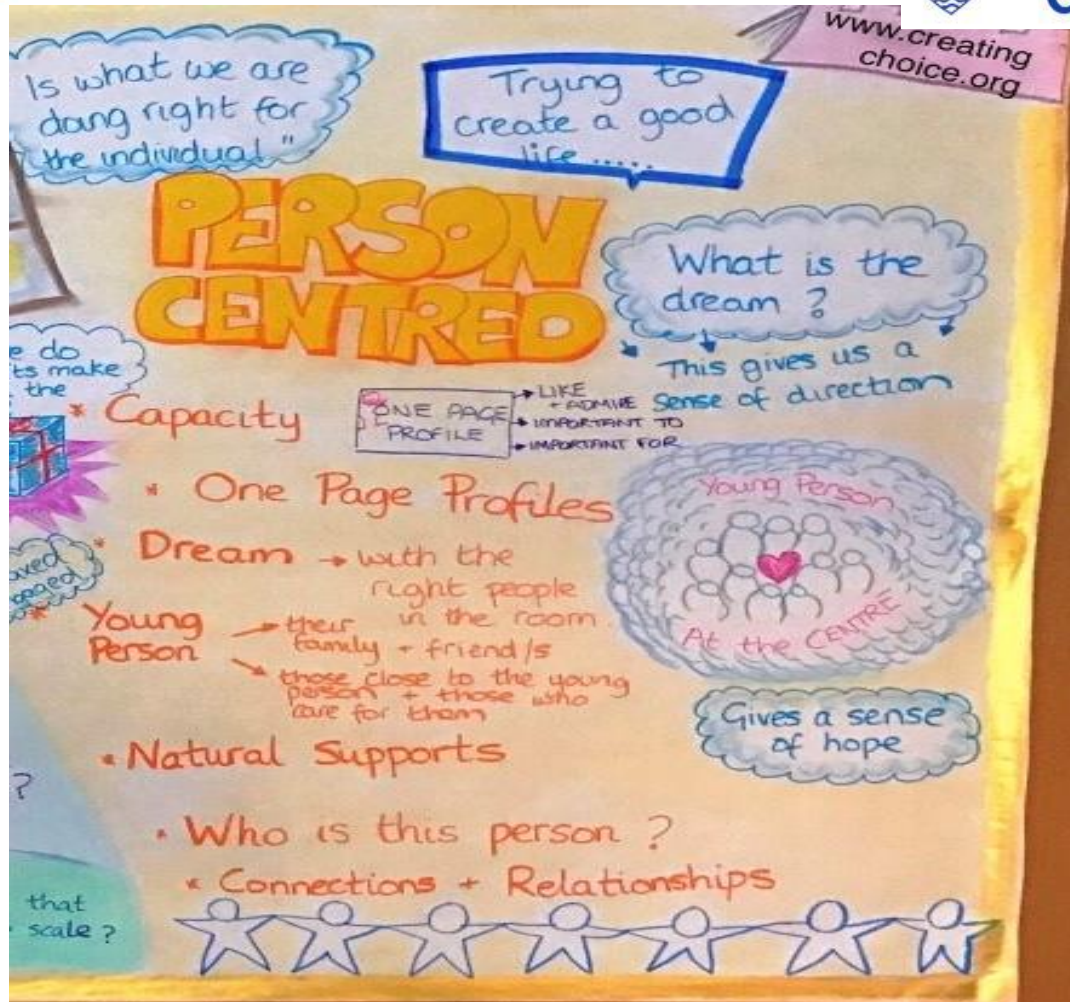 www.creating
choice.org
Is what we are
doing right for
the individual "
Trying to
create a good
life .....
PERSON
CENTRED
What is the
dream ?
This gives us a
sense of direction
do
ts make
the
* Capacity
ONE PAGE
PROFILE
→ LIKE
+ ADMIRE
→ IMPORTANT TO
→ IMPORTANT FOR
* One Page Profiles
* Dream → with the
right people
in the room
Young
Person
→ their
family + friend/s
→ those close to the young
person + those who
care for them
Young Person
At the CENTRE
Gives a sense
of hope
• Natural Supports
?
• Who is this person ?
* Connections + Relationships
that
scale ?